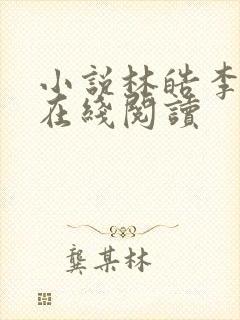 小説林皓李
在綫閱讀
龔某林